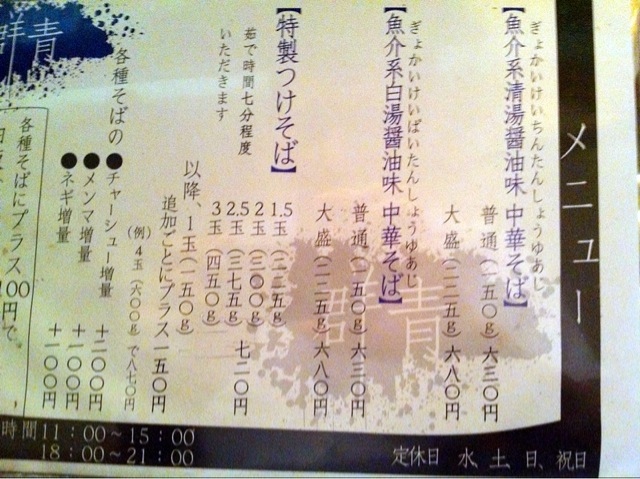 メニュー
ぎょかいけいちんたんしょうゆあじ
【魚介系清湯醤油味 中華そば】
普通（一五〇g）六三〇円
大盛（二二五g）六八〇円
ぎょかいけいぱいたんしょうゆあじ
【魚介系白湯醤油味 中華そば】
普通（一五〇g）六三〇円
大盛（二二五g）六八〇円
【特製つけそば】
茹で時間七分程度
いただきます
1.5玉（二二五g）
2玉（三〇〇g）
2.5玉（三七五g）七二〇円
3玉（四五〇g）
以降、1玉（一五〇g）
追加ごとにプラス一五〇円
（例）4玉（六〇〇g）で八七〇円
各種そばの
●チャーシュー増量 十二〇〇円
●メンマ増量 十一〇〇円
●ネギ増量 十一〇〇円
各種そばにプラス100円で、
群青
群青
時間 11：00〜15：00
18：00〜21：00
定休日 水、土、日、祝日